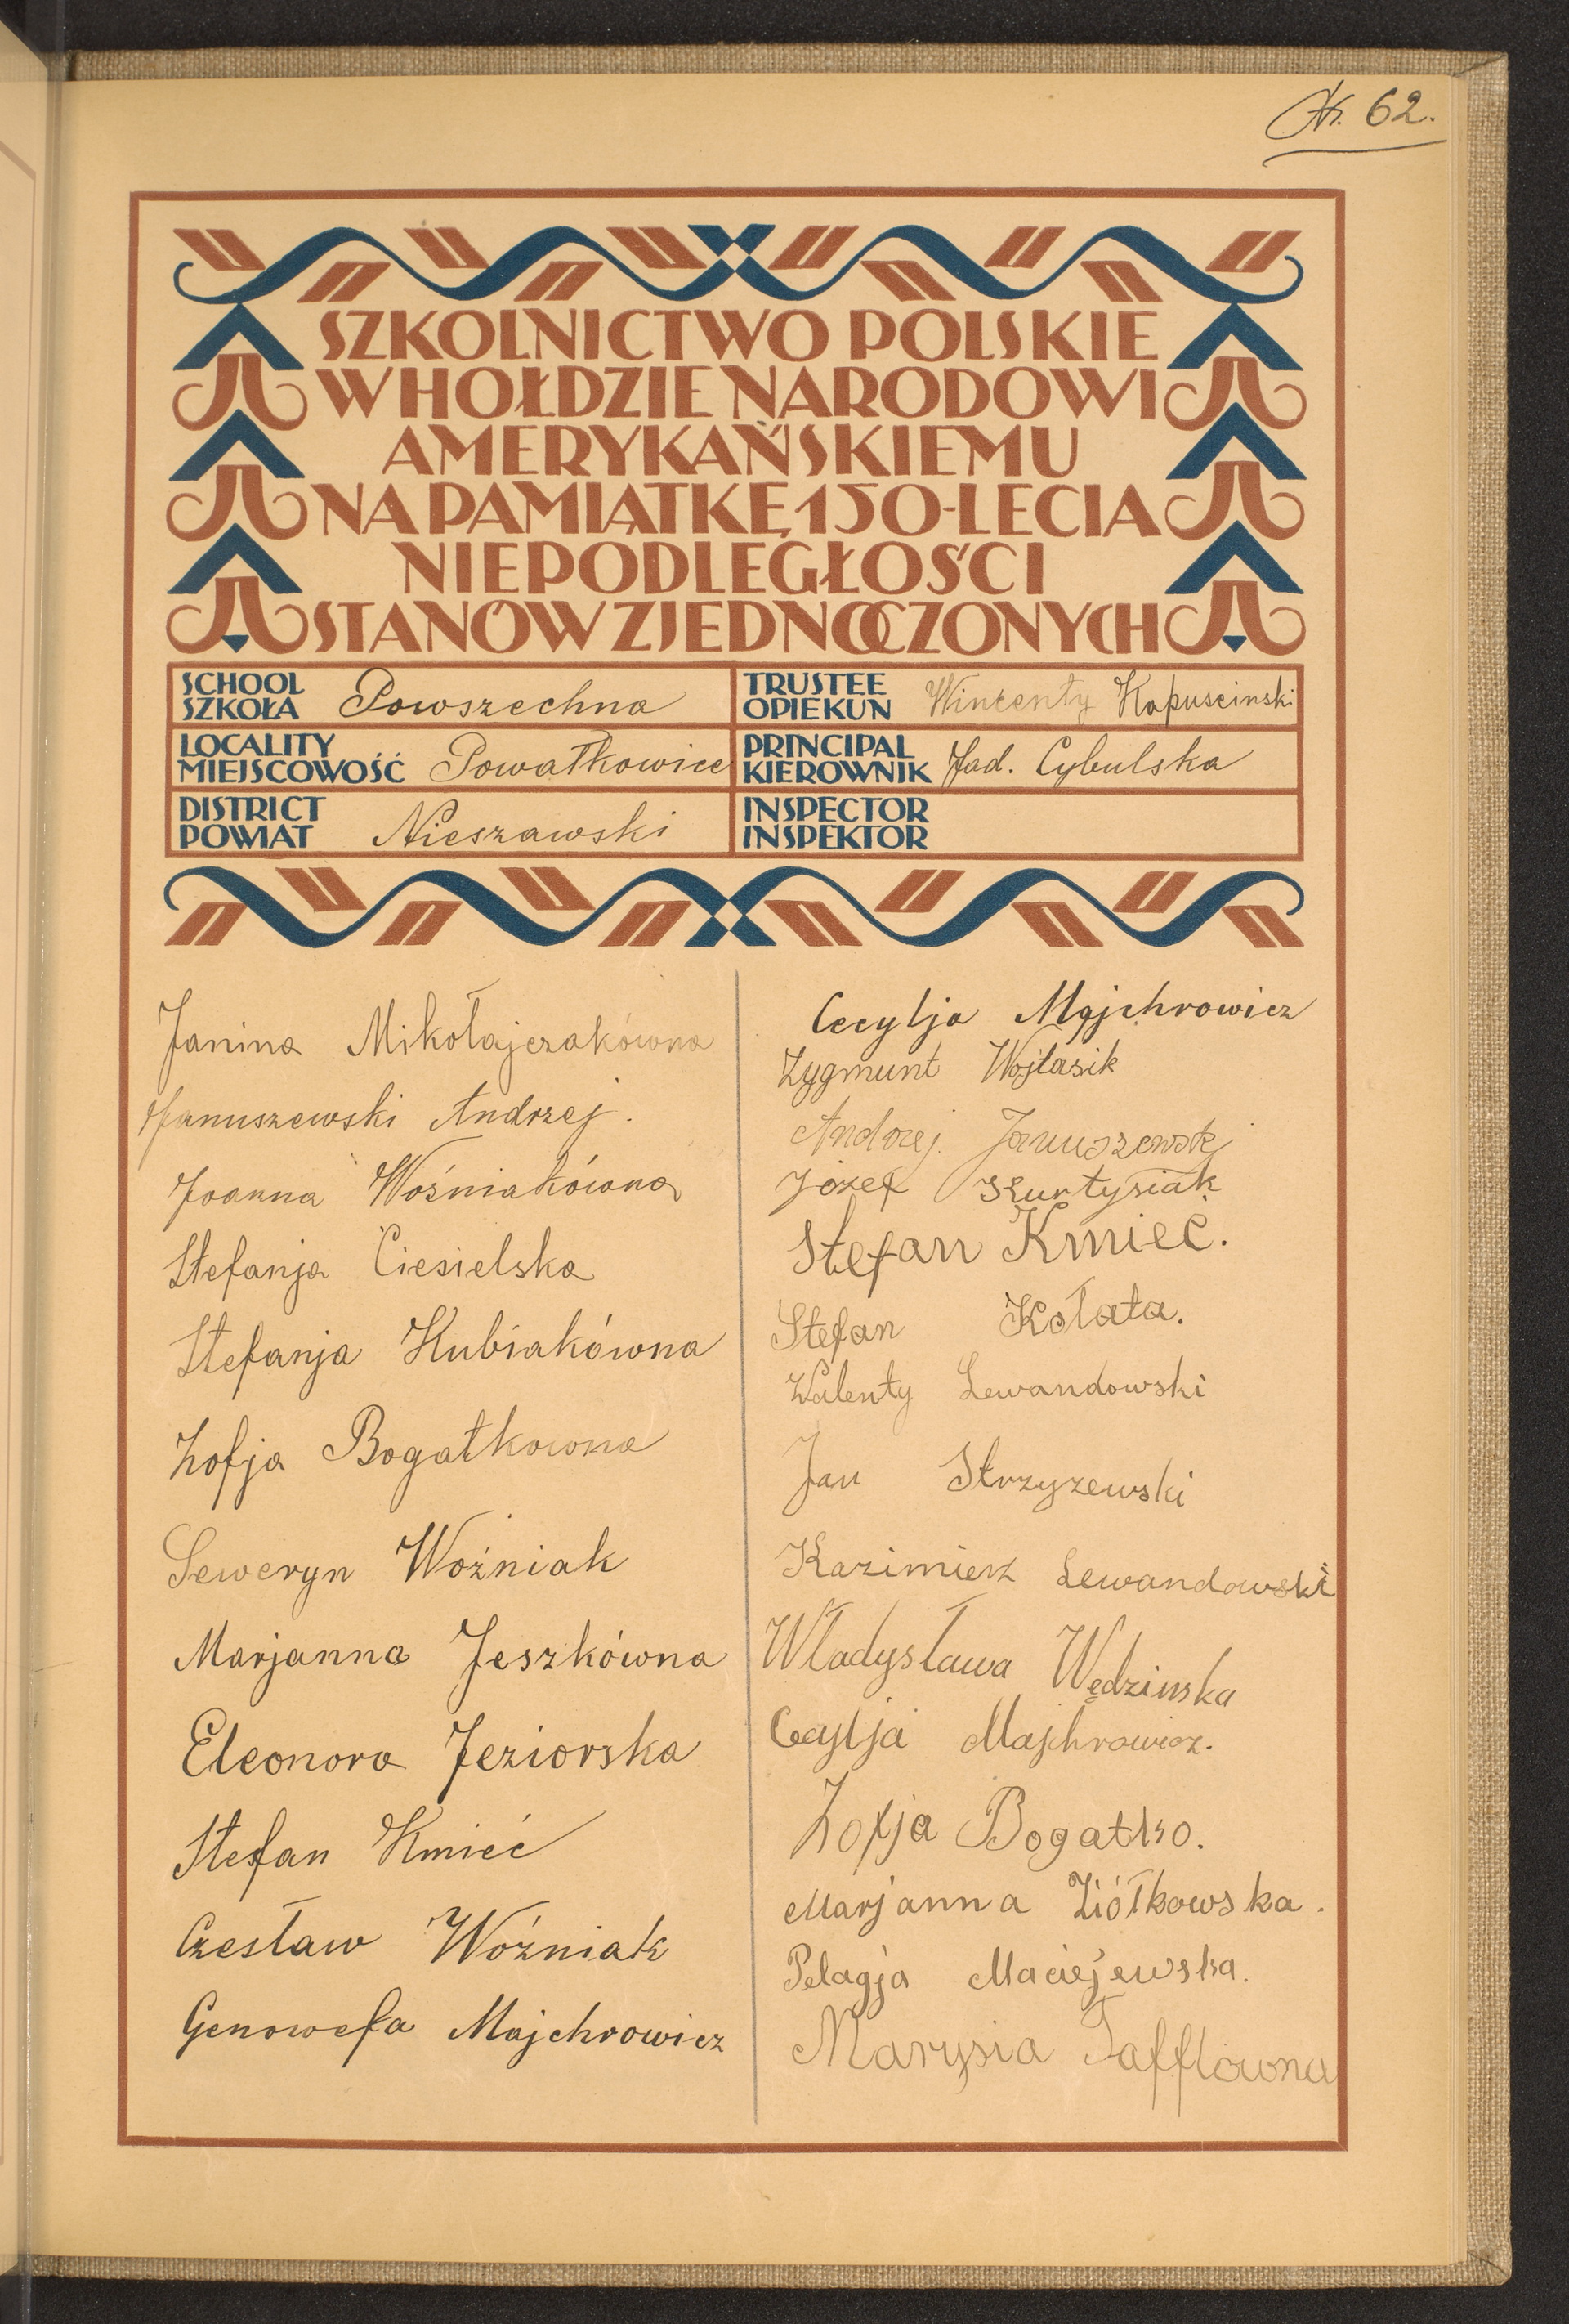 Nr. 62.
SZKOLNICTWO POLSKIE
W HOŁDZIE NARODOWI
AMERYKAŃSKIEMU
NA PAMIĄTKĘ 150-LECIA
NIEPODLEGŁOŚCI
STANÓW ZJEDNOCZONYCH
SCHOOL
SZKOŁA Powszechna
TRUSTEE
OPIEKUN Wincenty Kapuscinski
LOCALITY
MIEJSCOWOŚĆ Powałkowice
PRINCIPAL
KIEROWNIK Jad. Cybulska
DISTRICT
POWIAT Nieszawski
INSPECTOR
INSPEKTOR
Janina Mikołajczakówna
Januszewski Andrzej.
Joanna Woźniakówna
Stefanja Ciesielska
Stefanja Kubiakówna
Zofja Bogatkowna
Seweryn Woźniak
Marjanna Jeszkówna
Eleonora Jeziorska
Stefan Kmieć
Czesław Woźniak
Genowefa Majchrowicz
Cecylja Majchrowicz
Zygmunt Wojtasik
Andrzej Januszewski
Józef Kurtysiak
Stefan Kmieć.
Stefan Kołata.
Walenty Lewandowski
Jan Strzyzewski
Kazimierz Lewandowski
Władysława Wędzinska
Cecylja Majchrowicz.
Zofja Bogatko.
Marjanna Ziółkowska.
Pelagja Maciejewska.
Marysia Tafflowna